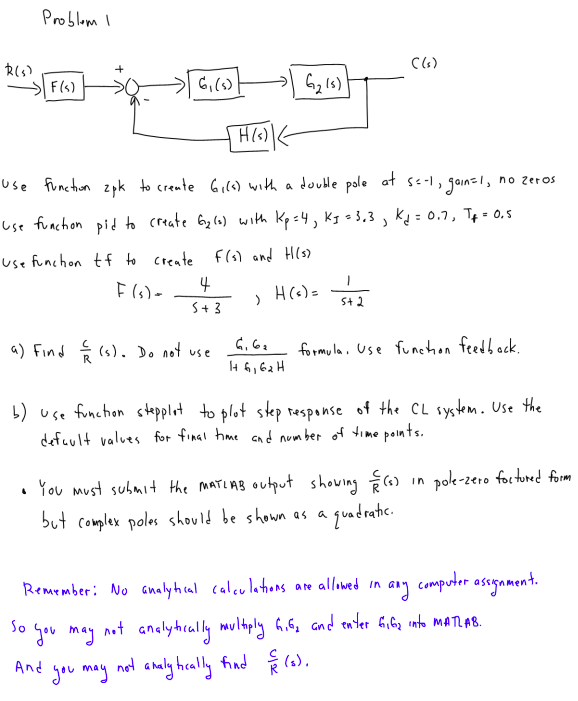 Problem 1
R(s) F(s) + - G₁(s) G₂(s) C(s)
H(s)
Use function zpk to create G₁(s) with a double pole at s=-1, gain=1, no zeros
Use function pid to create G₂(s) with Kp=4, KI=3.3, Kd=0.7, Tf=0.5
Use function tf to create F(s) and H(s)
F(s)= 4/(s+3), H(s)= 1/(s+2)
a) Find C/R (s). Do not use G₁G₂/(1+G₁G₂H) formula. Use function feedback.
b) Use function stepplot to plot step response of the CL system. Use the
default values for final time and number of time points.
• You must submit the MATLAB output showing C/R (s) in pole-zero factored form
but complex poles should be shown as a quadratic.
Remember: No analytical calculations are allowed in any computer assignment.
So you may not analytically multiply G₁G₂ and enter G₁G₂ into MATLAB.
And you may not analytically find C/R (s).